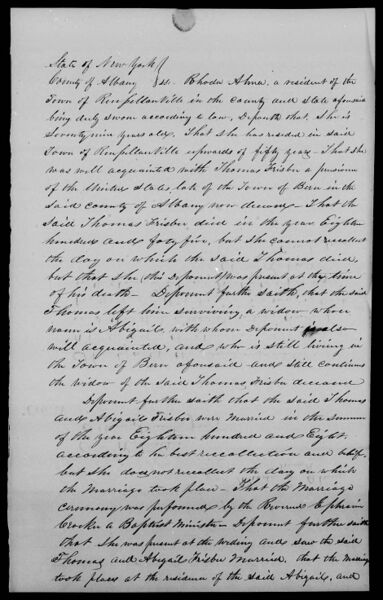 State of New York }
County of Albany } ss. Rhoda Alma, a resident of the
Town of Rensellaerville in the county and state aforesaid
being duly sworn according to law, Deposeth that, She is
Seventy nine years old. That she has resided in said
Town of Rensellaerville upwards of fifty years - That she
was well acquainted with Thomas Frisber a pensioner
of the United States, late of the Town of Bern in the
said county of Albany now deceased - That the
said Thomas Frisber died in the year Eighteen
hundred and forty five, but she cannot recollect
the day on which the said Thomas died,
but that she (this Deponent) was present at the time
of his death - Deponent further saith, that the said
Thomas left him surviving, a widow, whose
name is Abigail, with whom Deponent is also
well acquainted, and who is still living in
the Town of Bern aforesaid - and still continues
the widow of the said Thomas Frisber deceased
Deponent further saith that the said Thomas
and Abigail Frisber were Married in the summer
of the year Eighteen hundred and Eight,
according to her best recollection and belief,
but she does not recollect the day on which
the Marriage took place - That the Marriage
ceremony was performed by the Reverend Ephraim
Crocker a Baptist Minister - Deponent further saith
that she was present at the wedding and saw the said
Thomas and Abigail Frisber Married, that the wedding
took place at the residence of the said Abigail, and